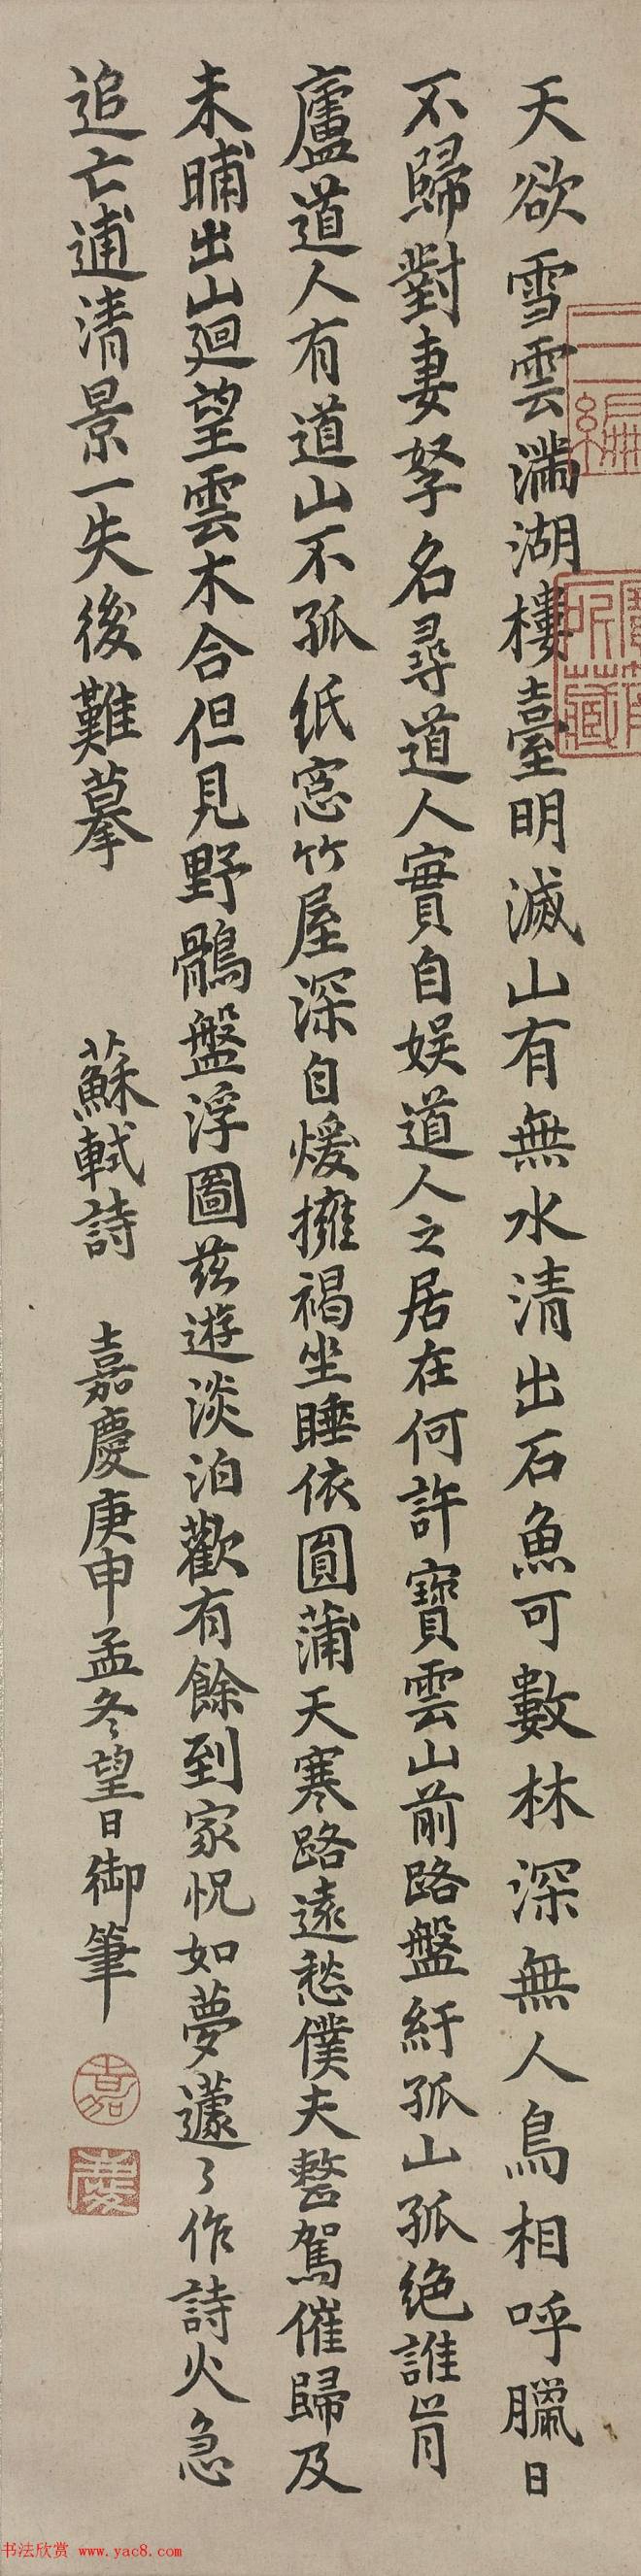 天欲雪雲滿湖樓臺明滅山有無水清出石魚可數林深無人鳥相呼臘日
不歸對妻孥名尋道人實自娛道人之居在何許寶雲山前路盤紆孤山孤絶誰肯
廬道人有道山不孤紙窓竹屋深自煖擁褐坐睡依圓蒲天寒路遠愁僕夫整駕催歸及
未晡出山廻望雲木合但見野鶻盤浮圖茲遊淡泊歡有餘到家怳如夢蘧々作詩火急
追亡逋清景一失後難摹 蘇軾詩 嘉慶庚申孟冬望日御筆
嘉
慶
三編
所藏
书法欣赏 www.yac8.com